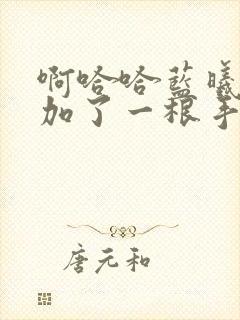 啊哈哈蓝曦
加了一根手
唐元和